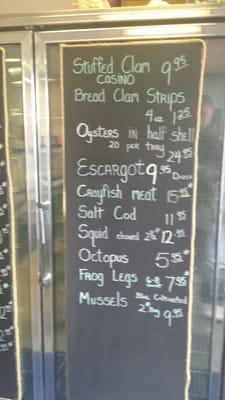 Stuffed Clam 9.95
CASINO
Bread Clam Strips
4 oz 1.25
Oysters in half shell
20 per tray 24.95
Escargot 9.95 Dozen
Crayfish meat 15.95*
Salt Cod 11.95
Squid cleaned 2½# 12.95
Octopus 5.95*
Frog Legs 6-8 7.95*
Mussels Blue Cultivated
2# Bag 9.95